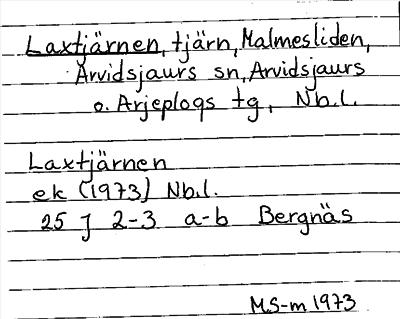 Laxtjärnen, tjärn, Malmesliden,
Arvidsjaurs sn, Arvidsjaurs
o. Arjeplogs tg, Nb.l.
Laxtjärnen
ek (1973) Nb.l.
25 J 2-3 a-b Bergnäs
MS-m 1973